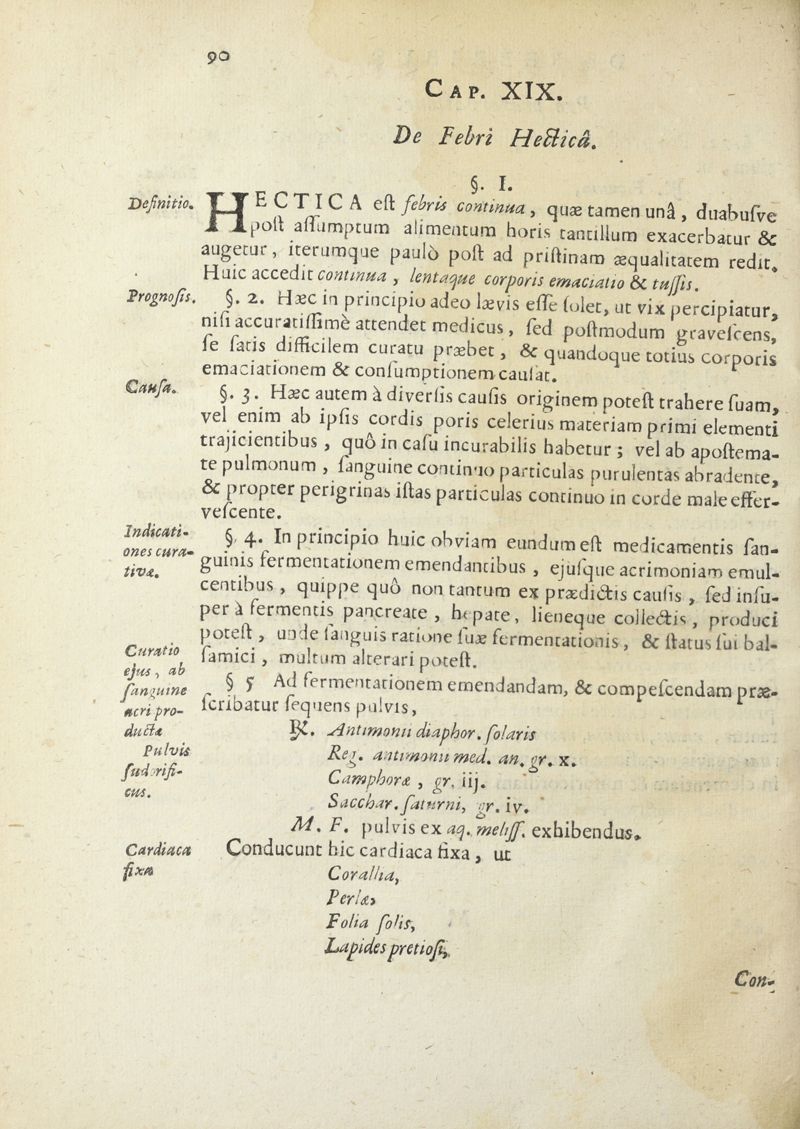 90
CAP. XIX.
De Febri Hecticâ.
§. I.
Definitio.
HECTICA eſt febris continua, quæ tamen unâ, duabuſve
poſt aſſumptum alimentum horis tantillum exacerbatur &
augetur, iterumque paulò poſt ad priſtinam æqualitatem redit.
Huic accedit continua, lentaque corporis emaciatio & tuſſis.
Prognoſis.
§. 2. Hæc in principio adeo lævis eſſe ſolet, ut vix percipiatur,
niſi accuratiſſimè attendet medicus, ſed poſtmodum graveſcens,
ſe ſatis difficilem curatu præbet, & quandoque totius corporis
emaciationem & conſumptionem cauſat.
Cauſa.
§. 3. Hæc autem à diverſis cauſis originem poteſt trahere ſuam,
vel enim ab ipſis cordis poris celerius materiam primi elementi
trajicientibus, quô in caſu incurabilis habetur; vel ab apoſtema-
te pulmonum, ſanguine continuo particulas purulentas abradente,
& propter perigrinas iſtas particulas continuo in corde male effer-
veſcente.
Indicati-
ones cura-
tivæ.
§. 4. In principio huic obviam eundum eſt medicamentis ſan-
guinis fermentationem emendantibus, ejuſque acrimoniam emul-
centibus, quippe quô non tantum ex prædictis cauſis, ſed inſu-
per à fermentis pancreate, hepate, lieneque collectis, produci
poteſt, unde ſanguis ratione ſuæ fermentationis, & ſtatus ſui bal-
ſamici, multum alterari poteſt.
Curatio
ejus, ab
ſanguine
acri pro-
ducta
§ 5 Ad fermentationem emendandam, & compeſcendam præ-
ſcribatur ſequens pulvis,
Pulvis
ſudorifi-
cus.
℞. Antimonii diaphor. ſolaris
Reg. antimonii med. an. gr. x.
Camphoræ, gr. iij.
Sacchar. ſaturni, gr. iv.
M. F. pulvis ex aq. meliſſ. exhibendus.
Cardiaca
fixa
Conducunt hic cardiaca fixa, ut
Corallia,
Perlæ,
Folia ſolis,
Lapides pretioſi,
Con-